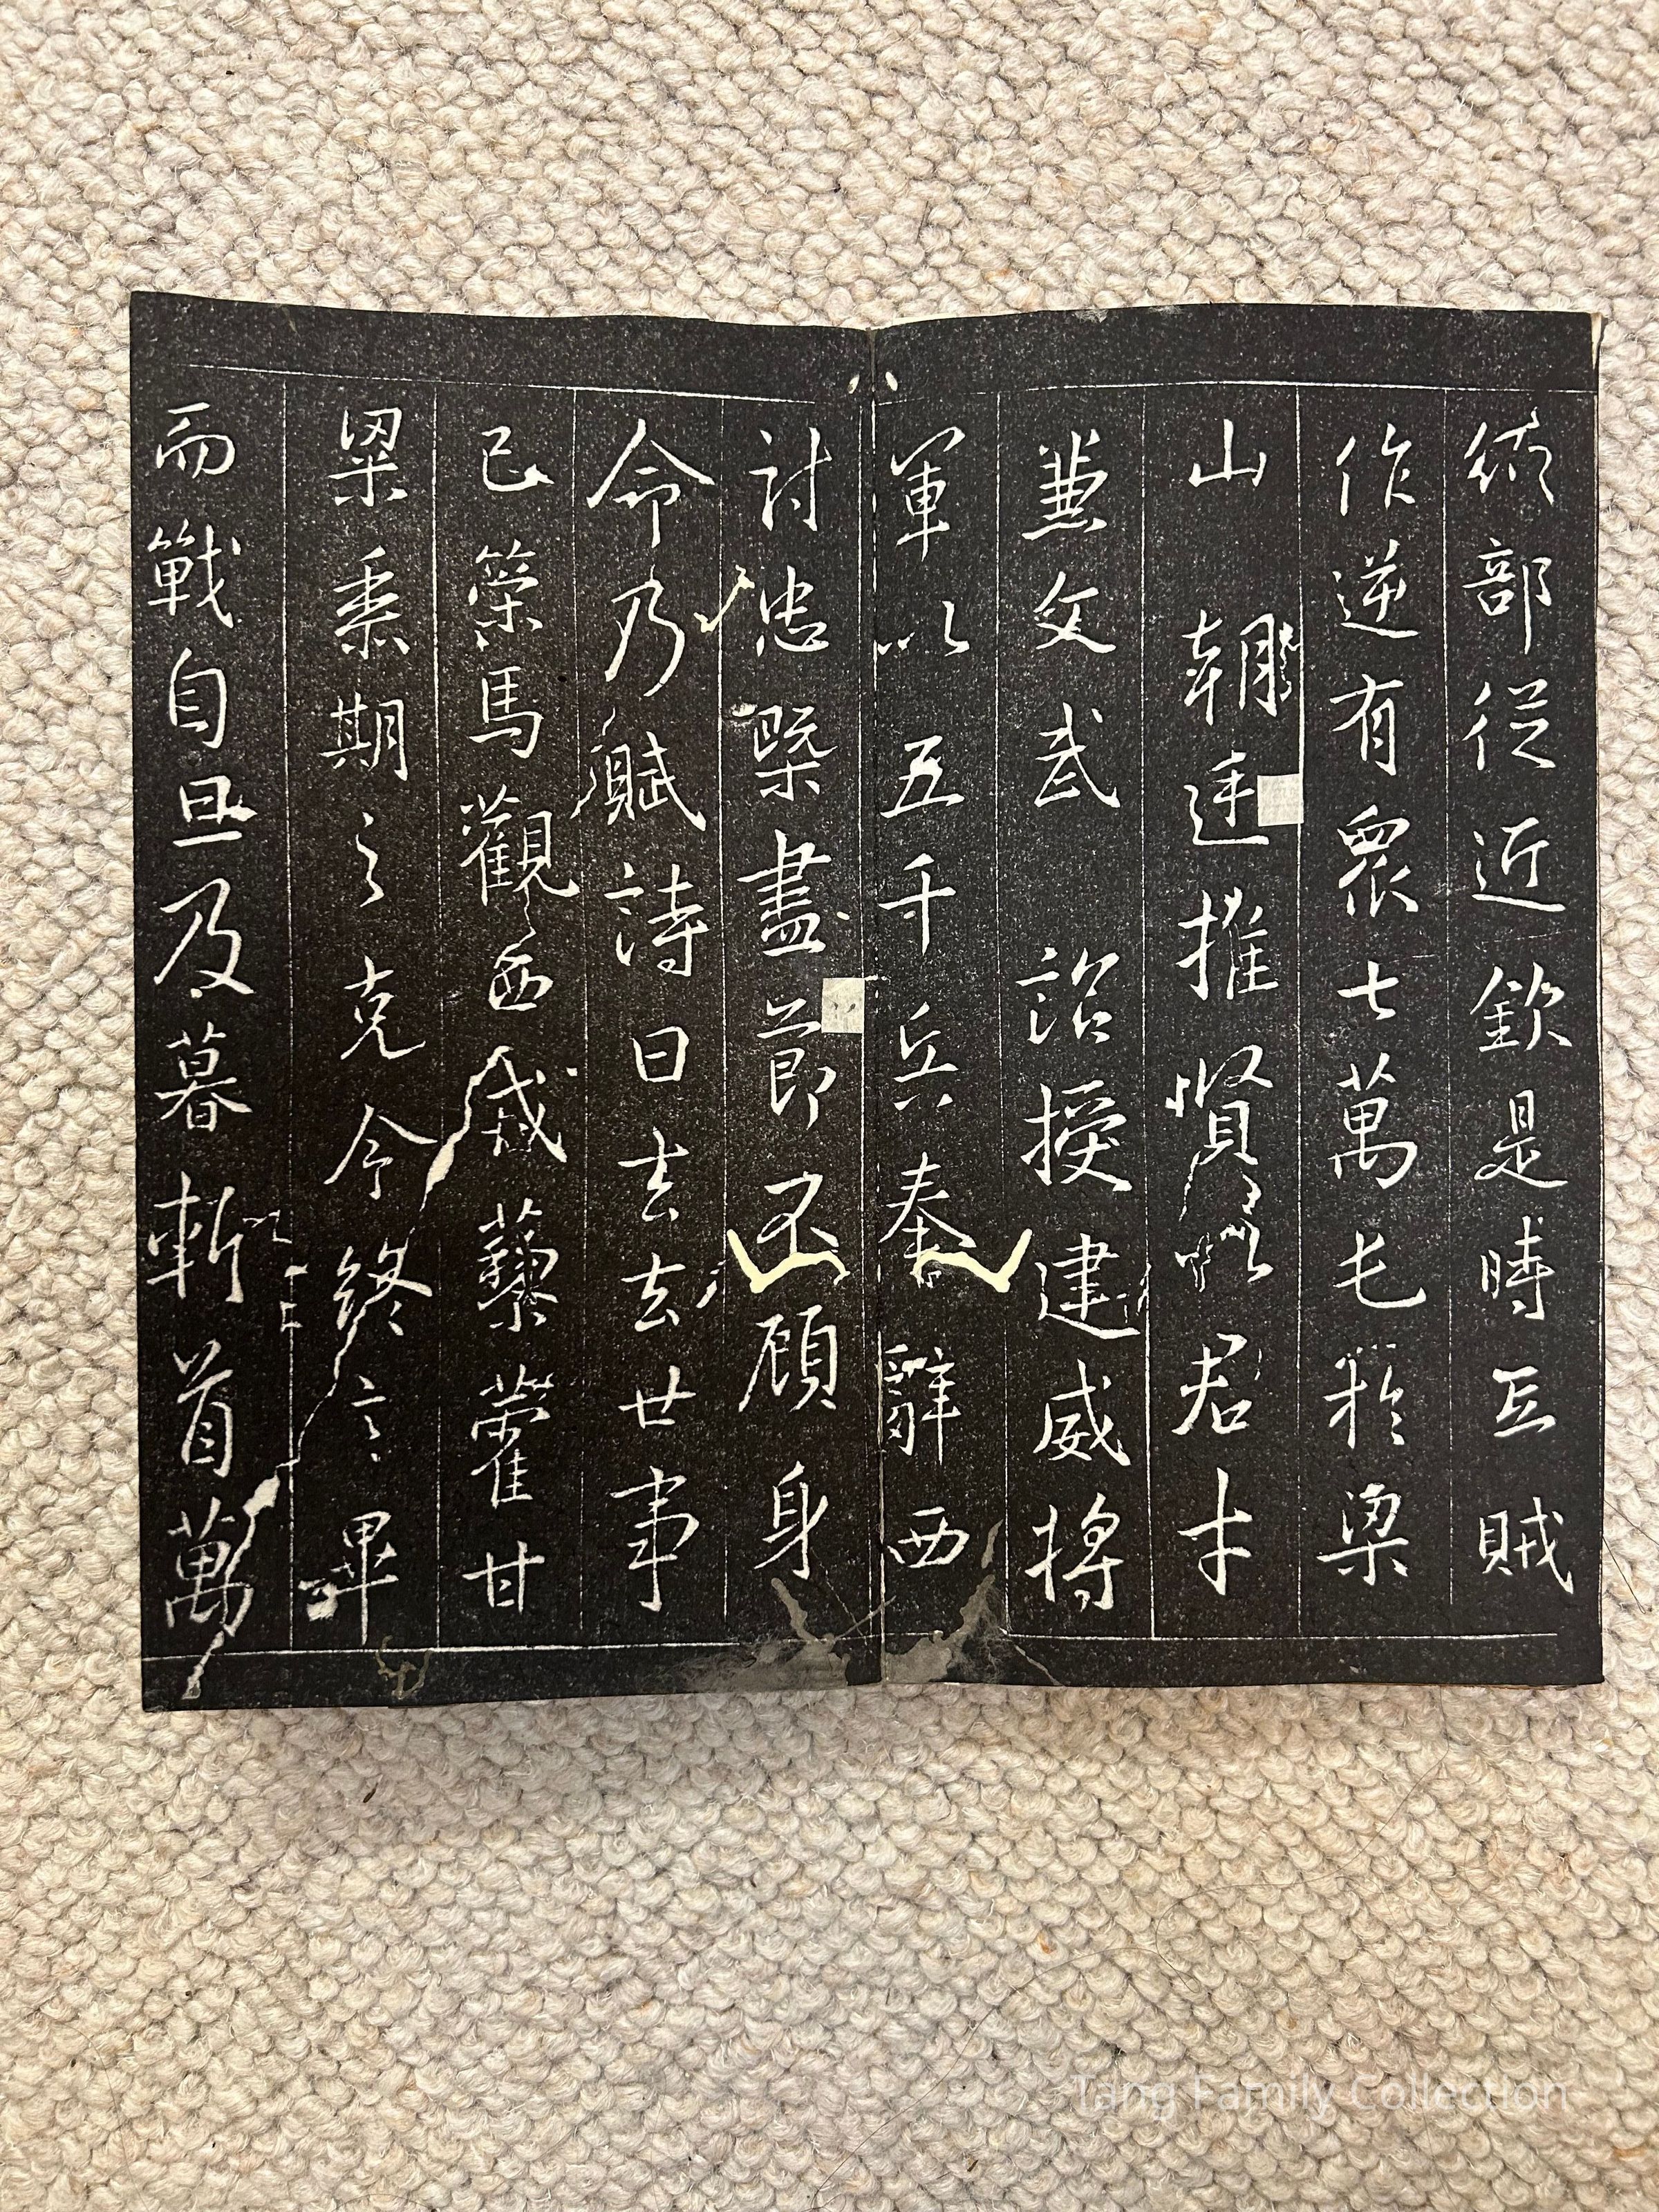 部從近欽是時氐賊
作逆有眾七萬屯於梁
山朝廷推賢以君才
兼文武詔授建威將
軍以五千兵奉辭西
討忠槩盡節不顧身
命乃賦詩曰去去世事
已策馬觀西戎藜藿甘
粱黍期之克令終言畢
而戰自旦及暮斬首萬
Tang Family Collection